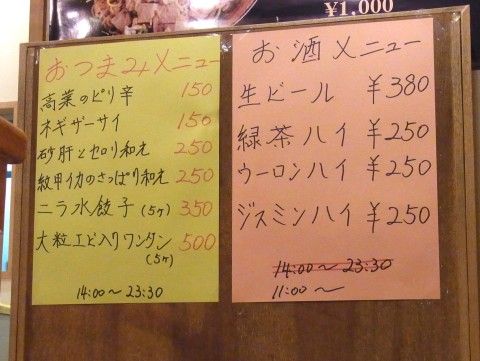 ¥1,000
おつまみメニュー
高菜のピリ辛 150
ネギザーサイ 150
砂肝とセロリ和え 250
紋甲イカのさっぱり和え 250
ニラ水餃子(5ヶ) 350
大粒エビ入りワンタン 500
(5ヶ)
14:00〜23:30
お酒メニュー
生ビール ¥380
緑茶ハイ ¥250
ウーロンハイ ¥250
ジスミンハイ ¥250
14:00〜23:30
11:00〜